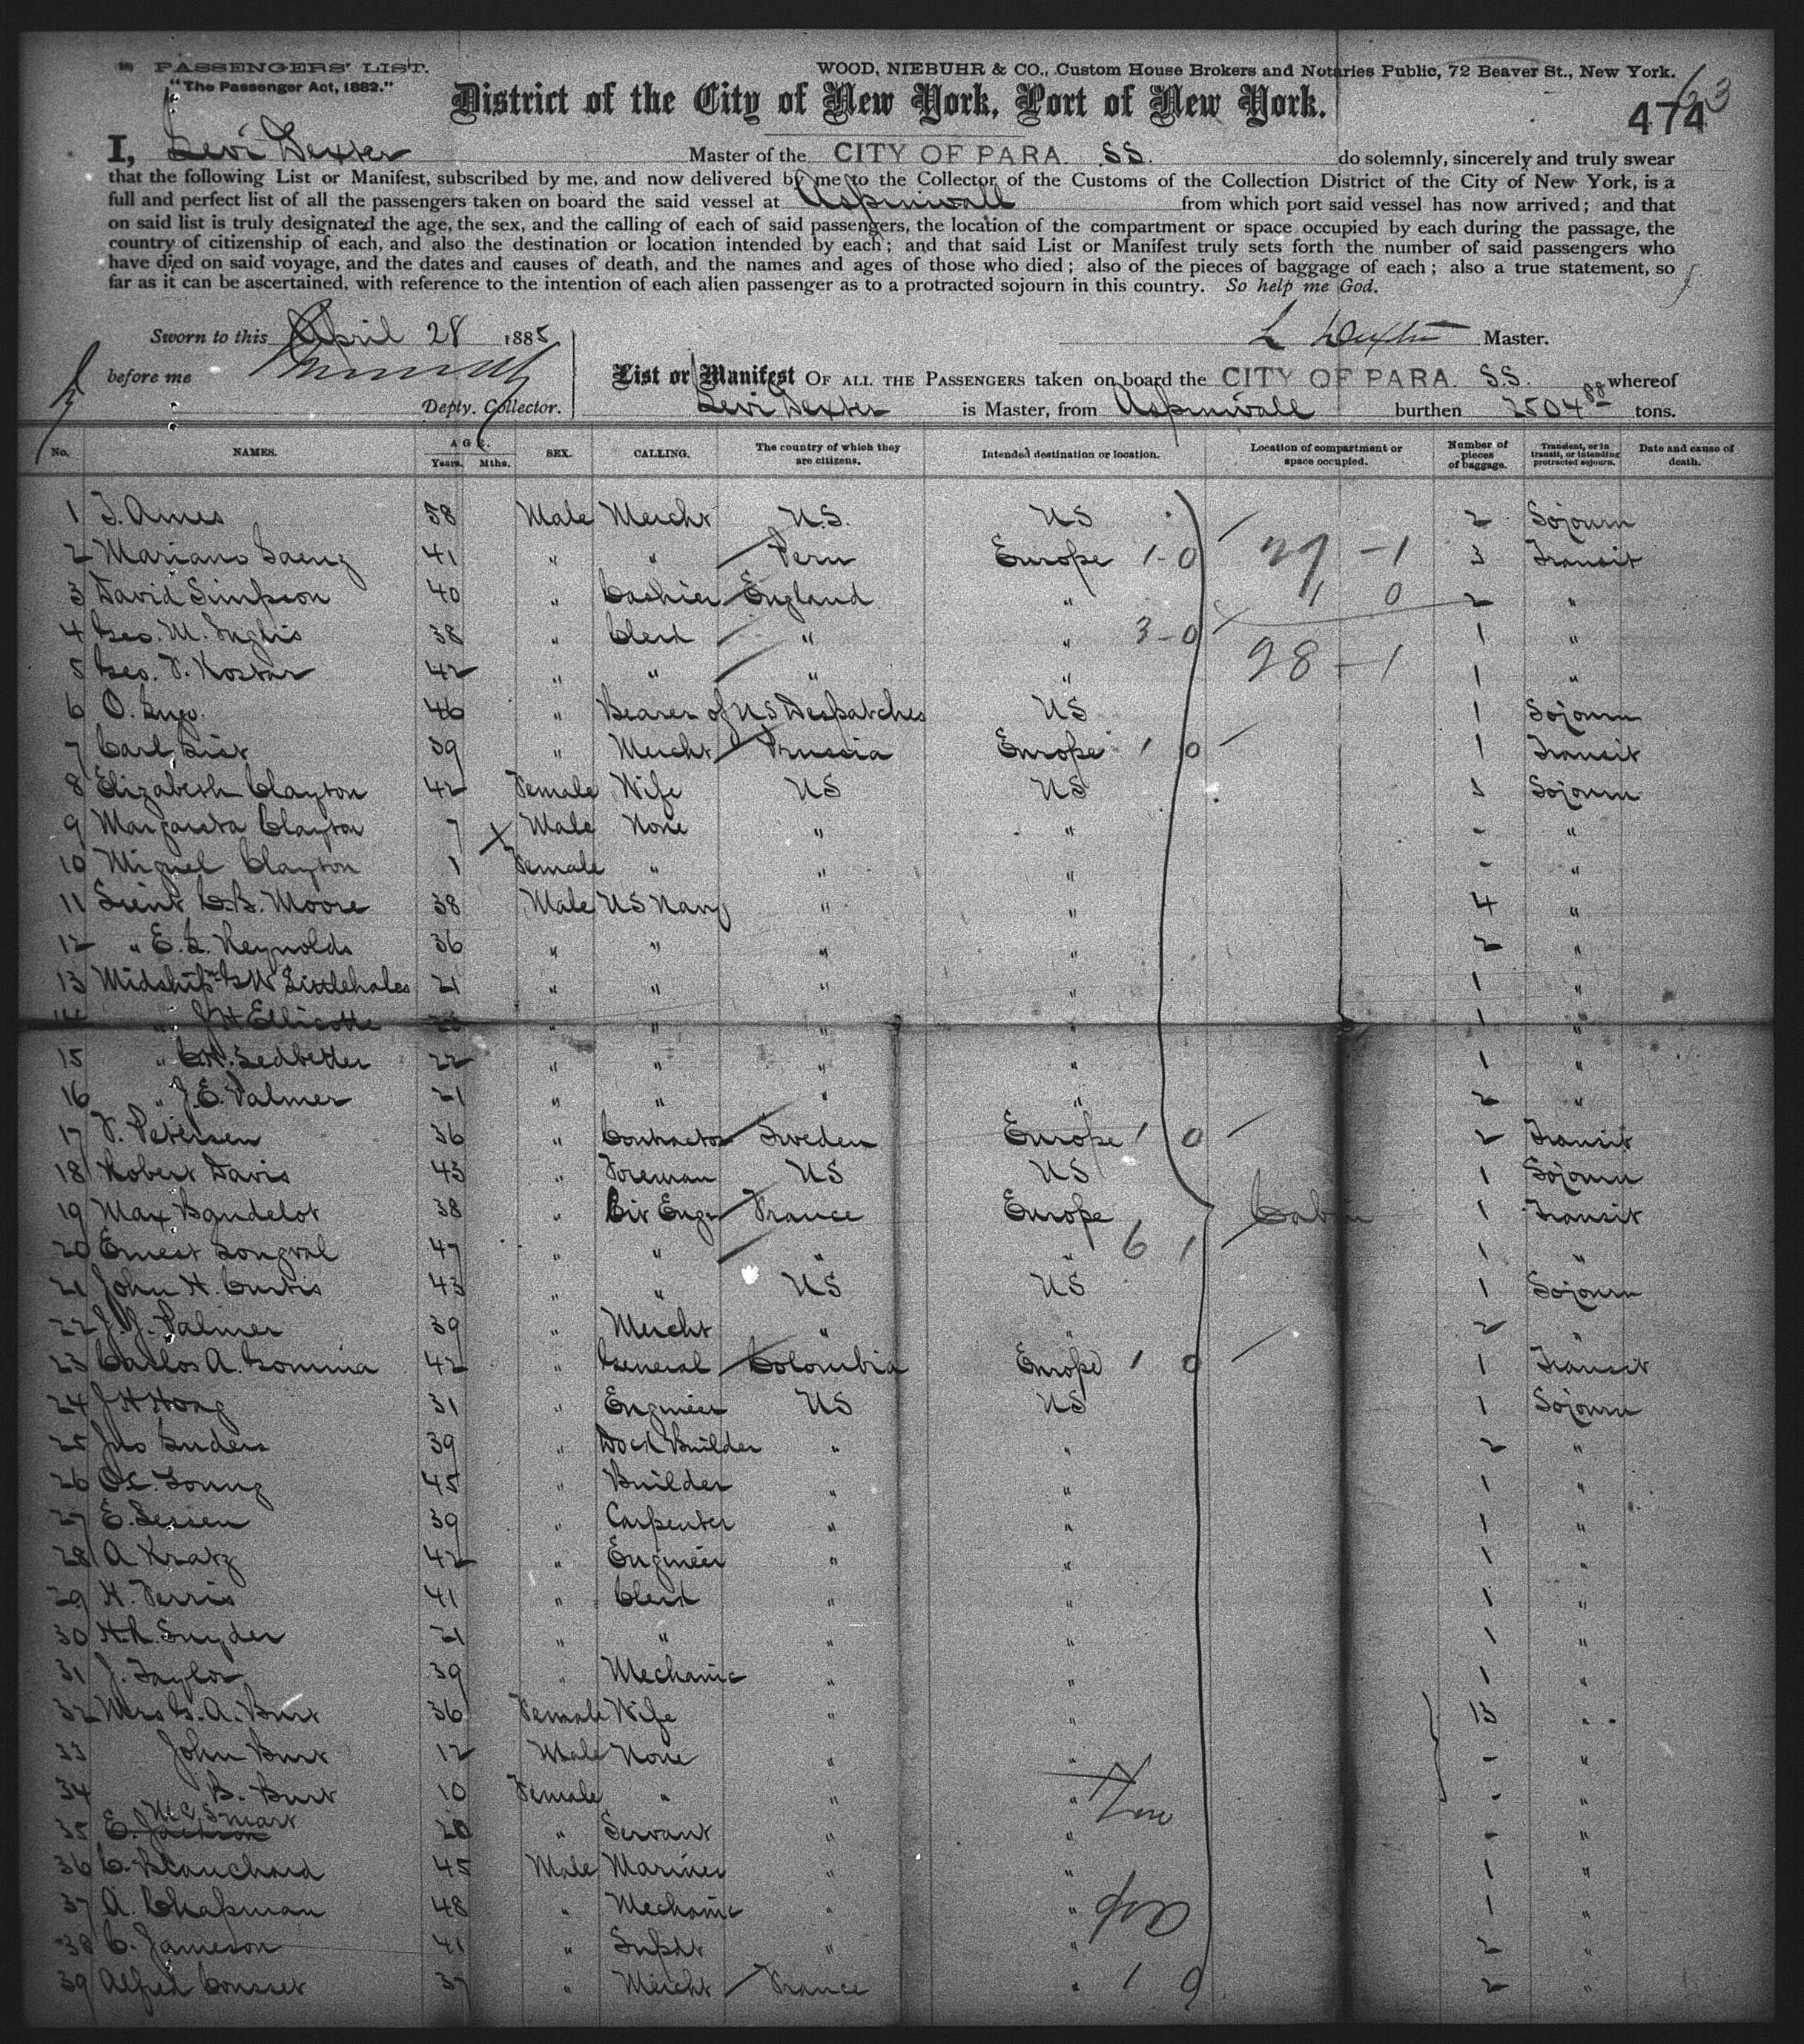 PASSENGERS' LIST.
WOOD, NIEBUHR & CO., Custom House Brokers and Notaries Public, 72 Beaver St., New York.
"The Passenger Act, 1882."
District of the City of New York, Port of New York.
63
474
I, Levi Dexter Master of the CITY OF PARA. SS. do solemnly, sincerely and truly swear
that the following List or Manifest, subscribed by me, and now delivered by me to the Collector of the Customs of the Collection District of the City of New York, is a
full and perfect list of all the passengers taken on board the said vessel at Aspinwall from which port said vessel has now arrived; and that
on said list is truly designated the age, the sex, and the calling of each of said passengers, the location of the compartment or space occupied by each during the passage, the
country of citizenship of each, and also the destination or location intended by each; and that said List or Manifest truly sets forth the number of said passengers who
have died on said voyage, and the dates and causes of death, and the names and ages of those who died; also of the pieces of baggage of each; also a true statement, so
far as it can be ascertained, with reference to the intention of each alien passenger as to a protracted sojourn in this country. So help me God.
Sworn to this April 28 1885
L Dexter Master.
before me
Deply. Collector.
List or Manifest OF ALL THE PASSENGERS taken on board the CITY OF PARA. S.S. whereof
Levi Dexter is Master, from Aspinwall burthen 2504 88 tons.
No. NAMES. AGE. Years. Mths. SEX. CALLING. The country of which they are citizens. Intended destination or location. Location of compartment or space occupied. Number of pieces of baggage. Transient, or in transit, or intending protracted sojourn. Date and cause of death.
1 J. Ames 58 Male Mercht U.S. US 2 Sojourn
2 Mariano Saenz 41 " " Peru Europe 1-0 27 -1 3 Transit
3 David Simpson 40 " Cashier England " 1 0 2 "
4 Geo. M. Inglis 38 " Clerk " " 3-0 1 "
5 Geo. V. Kostar 42 " " " " 28-1 1 "
6 O. 46 " Bearer of US Despatches US 1 Sojourn
7 Carl List 39 " Mercht Prussia Europe 1 0 1 Transit
8 Elizabeth Clayton 42 Female Wife US US 3 Sojourn
9 Margareta Clayton 7 X Male None " " - "
10 Miguel Clayton 1 Female " " " - "
11 Lieut C.B. Moore 38 Male US Navy " " 4 "
12 " E. L. Reynolds 36 " " " " 2 "
13 Midshipm G W Littlehales 21 " " " " 1 "
14 " J H Ellicotte " " " " 1 "
15 " Ledbetter 22 " " " " 1 "
16 " J. E. Palmer 21 " " " " 2 "
17 P. Petersen 36 " Contractor Sweden Europe 1 0 2 Transit
18 Robert Davis 43 " Foreman US US 1 Sojourn
19 Max Baudelot 38 " Civ Engr France Europe Cabin 1 Transit
20 Ernest Longval 47 " " " " 6 1 1 "
21 John H. Curtis 43 " " US US 1 Sojourn
22 J. J. Palmer 39 " Mercht " " 2 "
23 Carlos A. Gonima 42 " General Colombia Europe 1 0 1 Transit
24 J H Hoag 31 " Engineer US US 1 Sojourn
25 Jno Luders 39 " Dock Builder " " 2 "
26 Young 45 " Builder " " 1 "
27 E. Jessen 39 " Carpenter " " 1 "
28 A Kratz 42 " Engineer " " 1 "
29 H. Ferris 41 " Clerk " " 1 "
30 H.L. Snyder 21 " " " " 1 "
31 J. Taylor 39 " Mechanic " " 1 "
32 Mrs G. A. Burt 36 Female Wife " " 13 "
33 John Burt 12 Male None " " - "
34 B. Burt 10 Female " " " - "
Mc Smart
35 E. Jackson 20 " Servant " " - "
36 C. Blanchard 45 Male Mariner " " 1 "
37 A. Chapman 48 " Mechanic " " 1 "
38 C. Jameson 41 " Supdt " " 2 "
39 Alfred Cousset 37 " Mercht France " 1 0 2 "